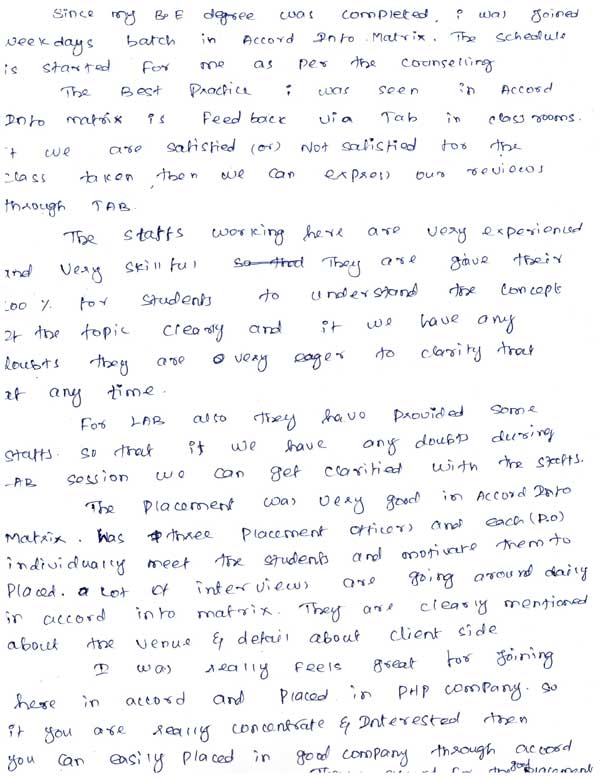 Since my B.E degree was completed, i was joined
weekdays batch in Accord Info Matrix. The schedule
is started for me as per the counselling
The Best Practice i was seen in Accord
Info matrix is Feedback via Tab in classrooms.
if we are satisfied (or) Not satisfied for the
class taken then we can express our reviews
through TAB.
The staffs working here are very experienced
and very skillful so that They are gave their
100 % for students to understand the concept
of the topic clearly and if we have any
doubts they are very eager to clarify that
at any time.
For LAB also they have provided some
staffs. so that if we have any doubts during
LAB session we can get clarified with the staffs.
The Placement was very good in Accord Info
Matrix. has three Placement officers and each (P.O)
individually meet the students and motivate them to
Placed. a lot of interviews are going around daily
in accord info matrix. They are clearly mentioned
about the venue & detail about client side
I was really feels great for joining
here in accord and Placed in PHP company. so
if you are really concentrate & Interested then
you can easily placed in good company through accord
for the good placement